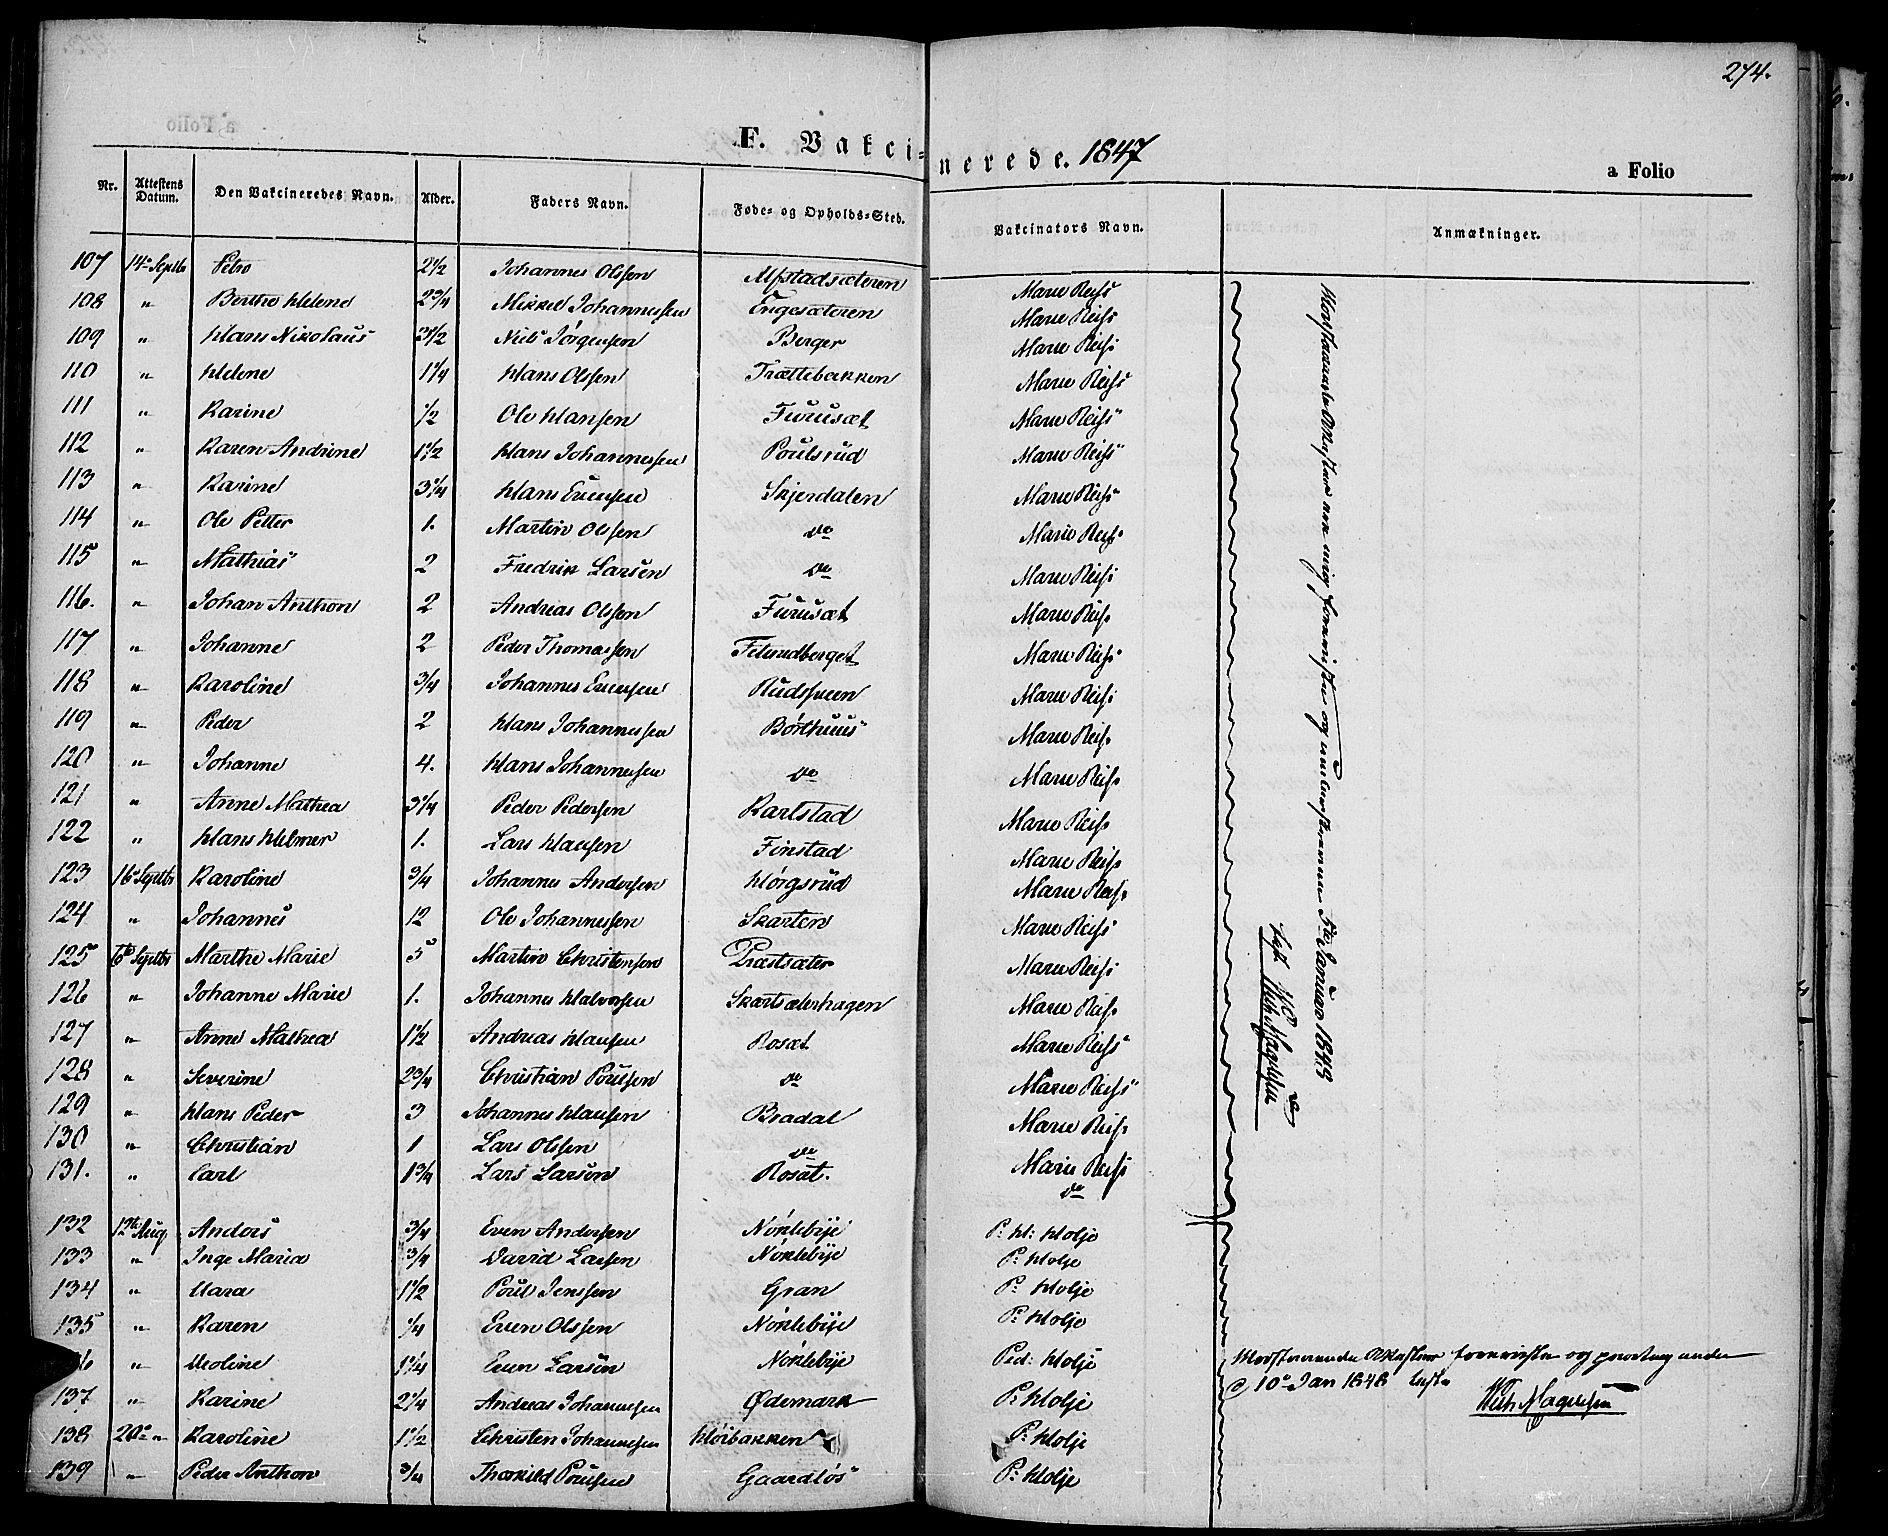 274.
F. Vakcinerede. 1847
a Folio
Nr. Attestens Datum. Den Vakcineredes Navn. Alder. Faders Navn. Føde- og Opholds-Sted. Vakcinators Navn. Anmækninger.
107 14de Septbr Petro 2 1/2 Johannes Olssen Alfstadsæteren Marie Reiss
108 " Berthe Helene 2 3/4 Mikkel Johannessen Engesæteren Marie Reiss
109 " Hans Nikolaus 3 1/2 Niels Jørgensen Berger Marie Reiss
110 " Helene 1 1/4 Hans Olssen Trættebakken Marie Reiss
111 " Karine 1/2 Ole Hansen Furusæt Marie Reiss
112 " Karen Andrine 1 1/2 Hans Johannessen Poulsrud Marie Reiss
113 " Karine 3 1/4 Hans Evensen Skjerdalen Marie Reiss
114 " Ole Petter 1. Martin Olssen do Marie Reiss
115 " Mathias 2 Fredrik Larsen do Marie Reiss
116. " Johan Anthon 2 Andreas Olssen Furusæt Marie Reiss
117 " Johanne 2 Peder Thomassen Marie Reiss
118 " Karoline 3/4 Johannes Evensen Rudsveen Marie Reiss
119 " Peder 2 Hans Johannessen Børthuus Marie Reiss
120 " Johanne 4. Hans Johannessen do Marie Reiss
121 " Anne Mathea 3 1/4 Peder Pedersen Karlstad Marie Reiss
122 " Hans Helmer 1. Lars Hansen Finstad Marie Reiss
123 16 Septbr Karoline 3/4 Johannes Andersen Hørgsrud Marie Reiss
124 " Johannes 12 Ole Johannessen Skarten Marie Reiss
125 Septbr Marthe Marie 5 Martin Christensen Præstsæter Marie Reiss
126 " Johanne Marie 1. Johannes Halvorsen Skartsæterhagen Marie Reiss
127 " Anne Mathea 1 1/2 Andreas Hansen Rosæt Marie Reiss
128 " Severine 2 3/4 Christian Poulsen do Marie Reiss
129 " Hans Peder 3 Johannes Hansen Bradal Marie Reiss
130 " Christian 1 Lars Olssen do Marie Reiss
131. " Carl 1 3/4 Lars Larsen Rosæt. do
132 12te Aug Andors 3/4 Even Andersen Nøklebye P: H: Holje
133 " Inge Maria 3/4 David Larsen Nøklebye P: Holje
134 " Mara 1 1/2 Poul Jenssen Gran P: Holje
135 " Karen 1/4 Even Olssen Nøklebye P: Holje
6 " Meoline 1 1/4 Even Larsen Nøklebye Ped: Holje
137 " Karine 2 1/4 Andreas Johannessen Ødemark P: Holje
138 20de " Karoline 1 1/2 Christen Johannessen Høibakken P: Holje
139 " Peder Anthon 3/4 Thorkild Poulsen Gaardløs P: Holje
Hosstaaende Attester ere mig foreviste og Januar 1848
Magelssen
Hosstaaende Attester foreviste og
10de Jan 1848
Wilh Magelssen